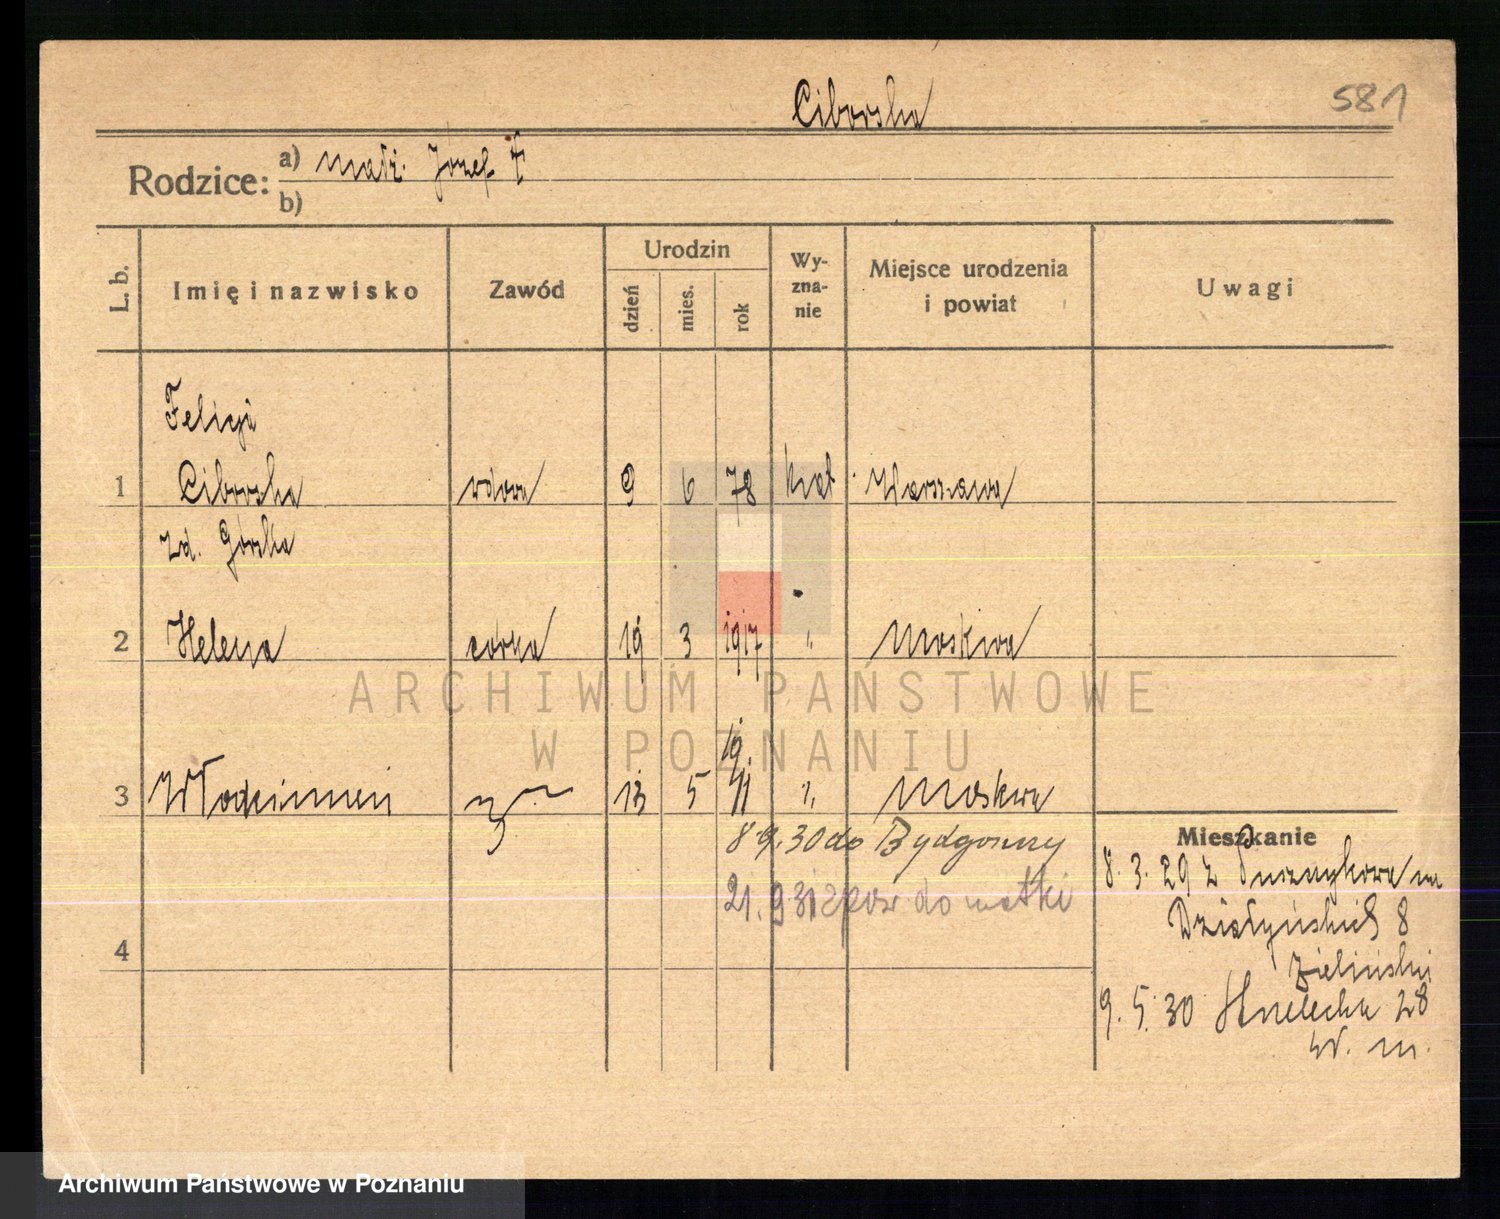 Ciborska
581
Rodzice: a) małż. Józef †
b)
L. b.
Imię i nazwisko
Zawód
Urodzin
dzień
mies.
rok
Wy-
zna-
nie
Miejsce urodzenia
i powiat
Uwagi
Felicja
1 Ciborska wdowa 9 6 78 kat Warszawa
zd. Górska
2 Helena córka 19 3 1917 " Moskwa
19
3 Włodzimierz 13 5 11 " Moskwa
8 9.30 do Bydgoszczy
21.9.31 z pow do matki
4
Mieszkanie
8.3.29 z
Działyńskich 8
Zieliński
9.5.30 28
w. m.
ARCHIWUM PAŃSTWOWE
W POZNANIU
Archiwum Państwowe w Poznaniu